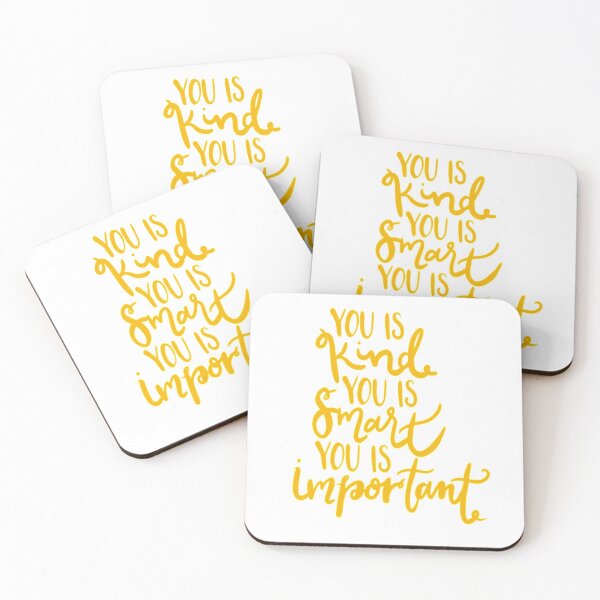 YOU IS
Kind
YOU IS
Smart
YOU IS
Kind
YOU IS
Smart
YOU IS
important
YOU IS
Kind
YOU IS
Smart
YOU IS
important
YOU IS
Kind
YOU IS
Smart
YOU IS
important